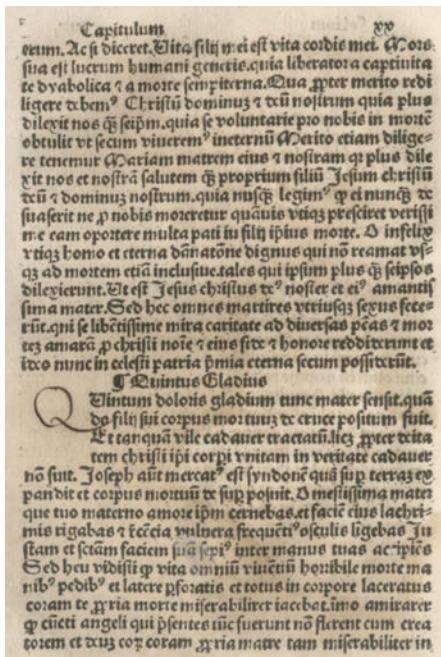 Capitulum xx
erum. Ac si diceret. Vita filij mei est vita cordis mei. Mors
sua est lucrum humani generis. quia liberator a captiuita
te dyabolica ⁊ a morte sempiterna. Qua ꝓpter merito redi
ligere debemꝰ Christū dominuʒ ⁊ deū nostrum quia plus
dilexit nos q̄ꝫ seip̄m. quia se voluntarie pro nobis in mortē
obtulit vt secum viueremꝰ ineternū Merito etiam dilige-
re tenemur Mariam matrem eius ⁊ nostram qr plus dile
xit nos et nostrā salutem q̄ꝫ proprium filiū Jesum christū
deū ⁊ dominuʒ nostrum. quia nusq̄ꝫ legimꝰ ꝙ ei nunq̄ꝫ de
suaserit ne ꝓ nobis moreretur quāuis vtiqꝫ presciret verissi
me eam oportere multa pati in filij ip̄ius morte. O infelix
vtiqꝫ homo et eterna dānatōne dignus qui nō reamat vs-
qꝫ ad mortem etiā inclusiue. tales qui ipsum plus q̄ꝫ seipsos
dilexerunt. Vt est Jesus christus deꝰ noster et eiꝰ amantis
sima mater. Sed hec omnes martires vtriusqꝫ sexus fece-
rūt. qui se libētissime mira caritate ad diuersas penas ⁊ mor
teʒ amarā ꝓ christi noīe ⁊ eius fide ⁊ honore reddiderunt et
ideo nunc in celesti patria p̄mia eterna secum possiderūt.
¶ Quintus Gladius
QVintum doloris gladium tunc mater sensit. quā
do filij sui corpus mortuuʒ de cruce positum fuit.
Et tanquā vile cadauer tractatū. licʒ ꝓpter deita
tem christi ip̄i corpi vnitam in veritate cadauer
nō fuit. Joseph aūt mercatꝰ est syndonē quā sup terras ex
pandit et corpus mortuū de sup posuit. O mestissima mater
que tuo materno amore ip̄m cernebas. et faciē eius lachri-
mis rigabas ⁊ vulnera frequentiꝰ osculis ligebas Iu
stam et sctām faciem sepiꝰ inter manus tuas
Sed heu vidisti ꝙ vita omniū viuentiū horribile morte ma
nibꝰ pedibꝰ et latere ꝑforatis et totus in corpore laceratus
coram te ꝓpria morte miserabiliter iacebat. imo amirarer
ꝙ cūcti angeli qui p̄sentes tūc fuerunt nō flerent cum crea
torem et deuʒ coram ꝓpria matre tam miserabiliter in